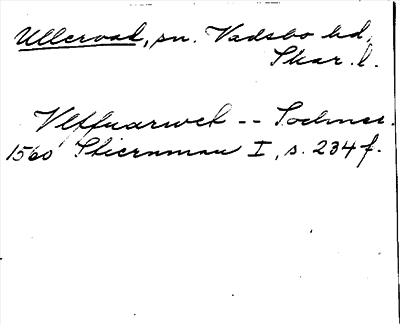 Ullervad, sn. Vadsbo hd,
Skar. l.
Vlffuarwek -- Sochnes.
1560 Stiernman I, s. 234 f.